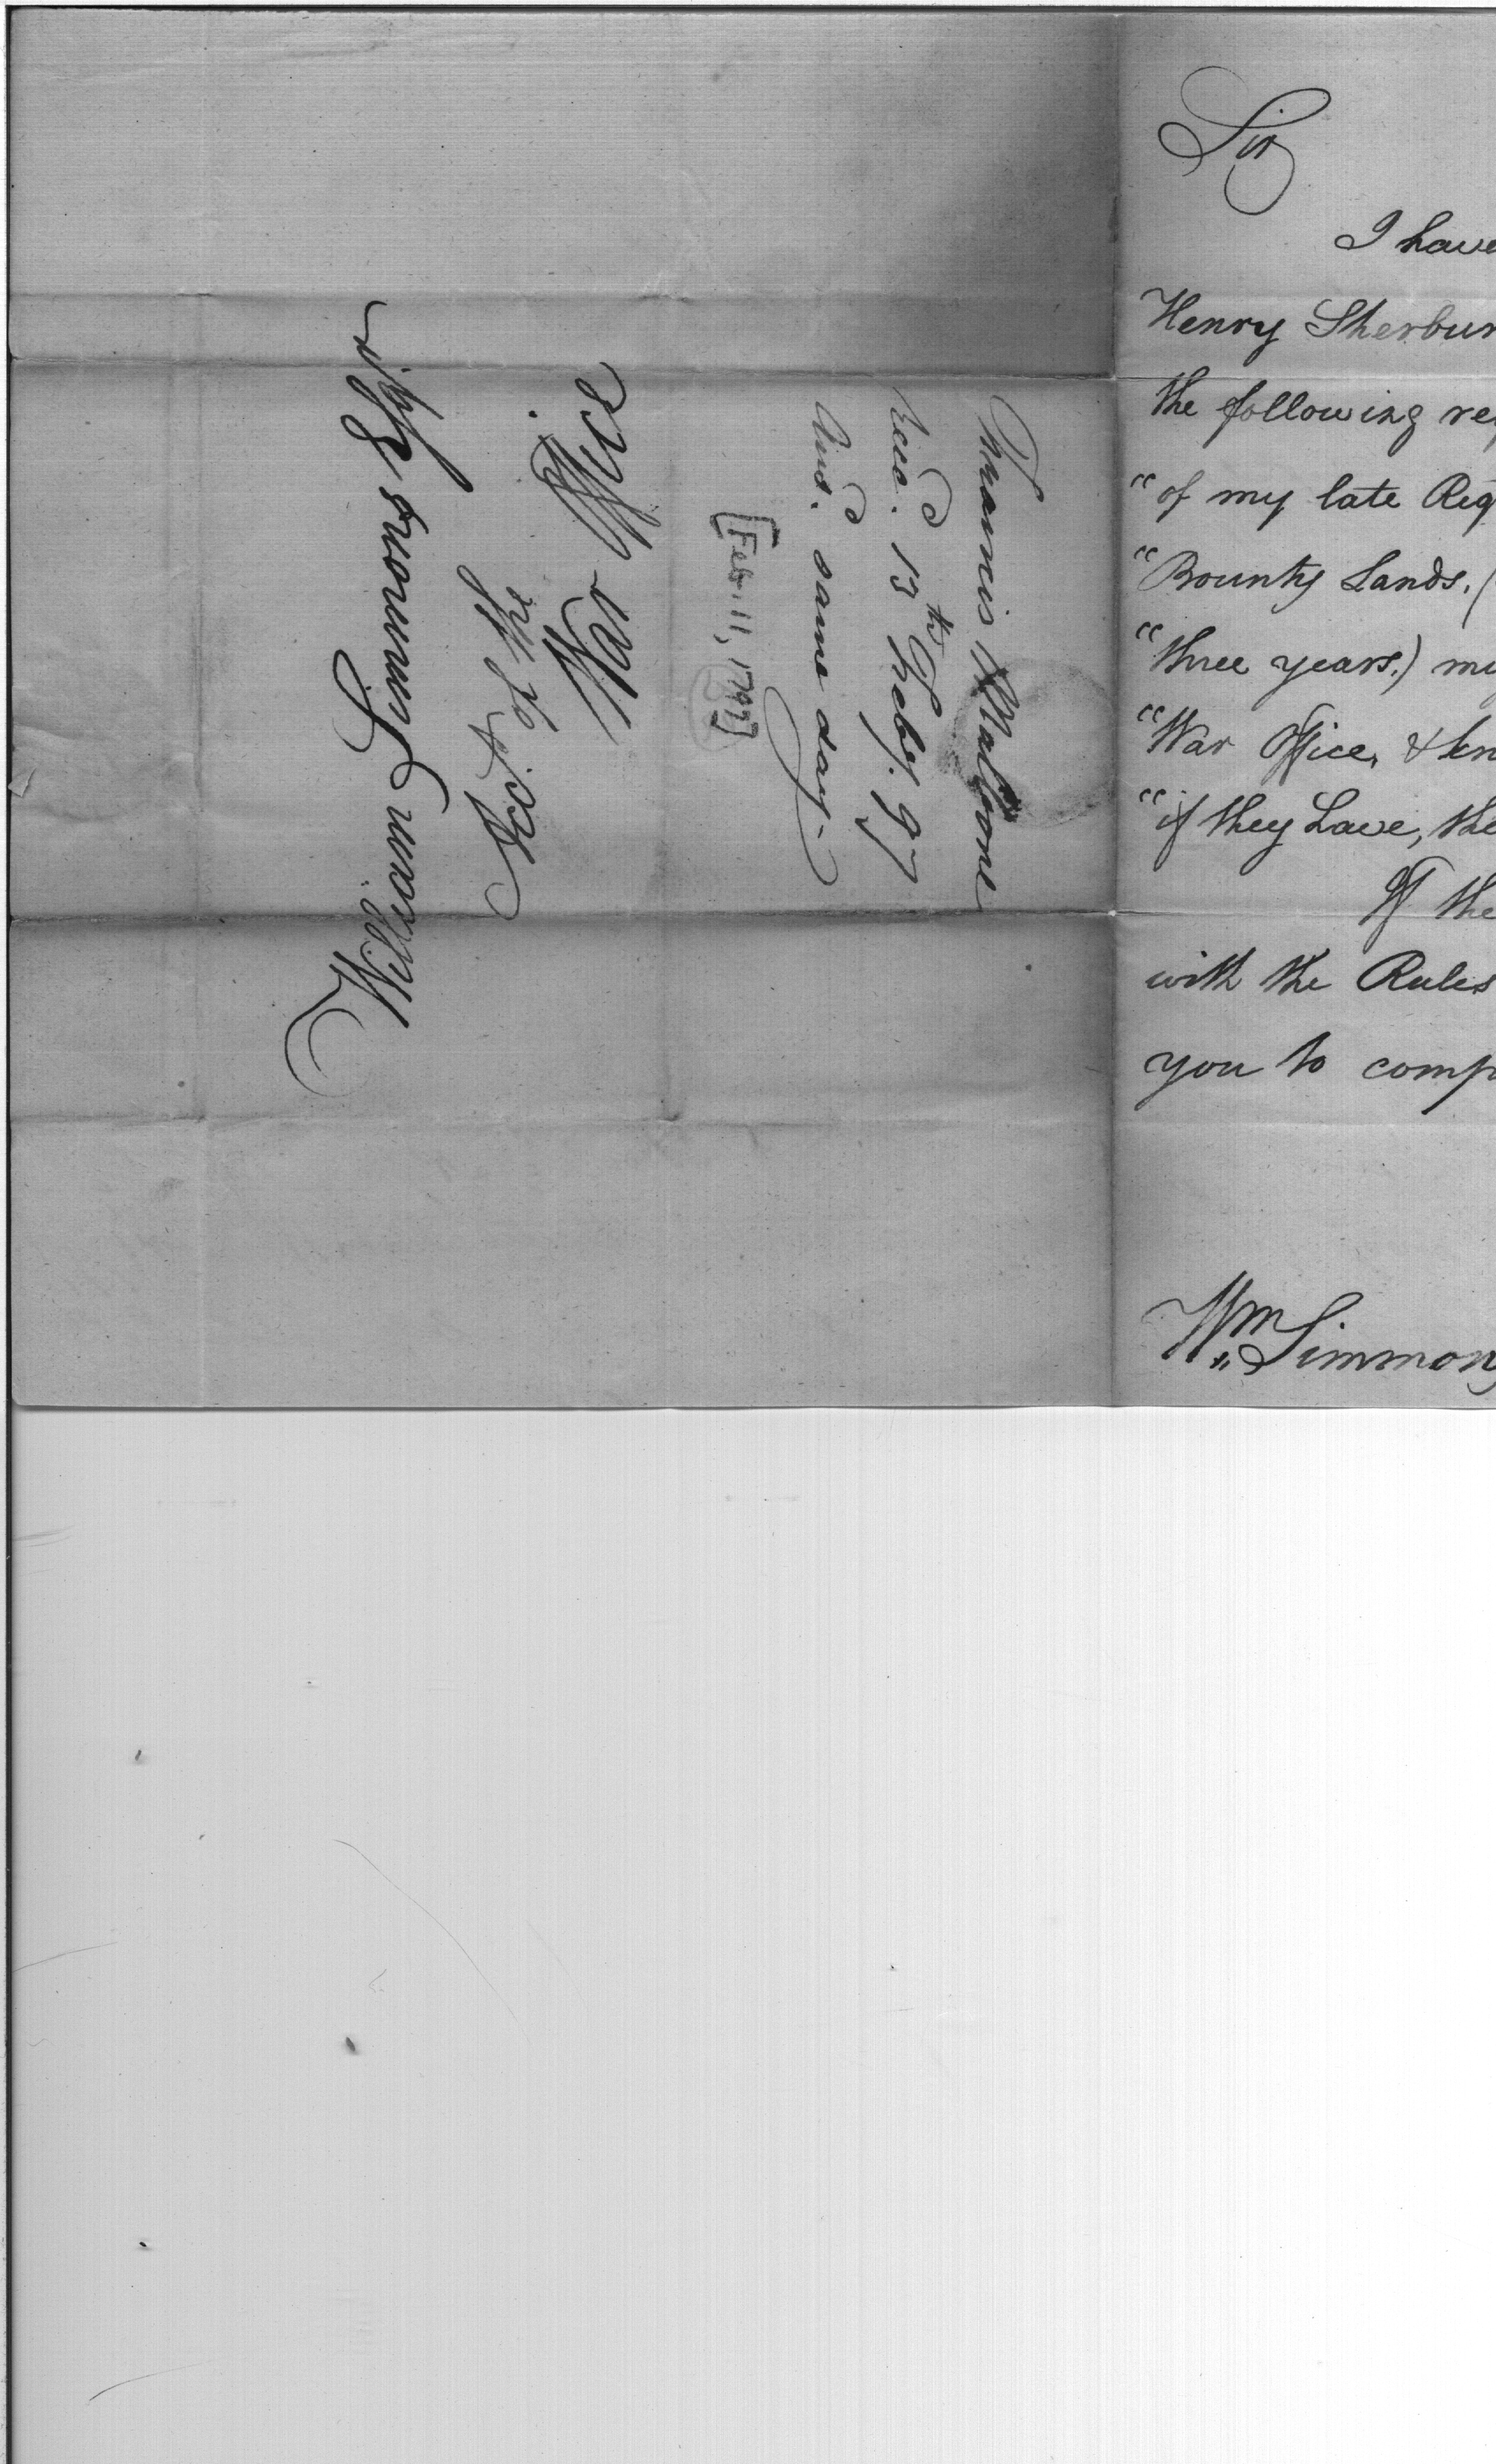 William Simmons Esqr.
Acct. of the
War Office
[Feb 11, 1797]
Francis Malbone
Recd. 13th Feby. 97
Ansd. same day
Sir
I have
Henry Sherbur
the following re
"of my late Reg
"Bounty Lands. (
"three years.) my
"War Office, & kn
"if they have, the
If the
with the Rules
you to comp
Wm Simmons